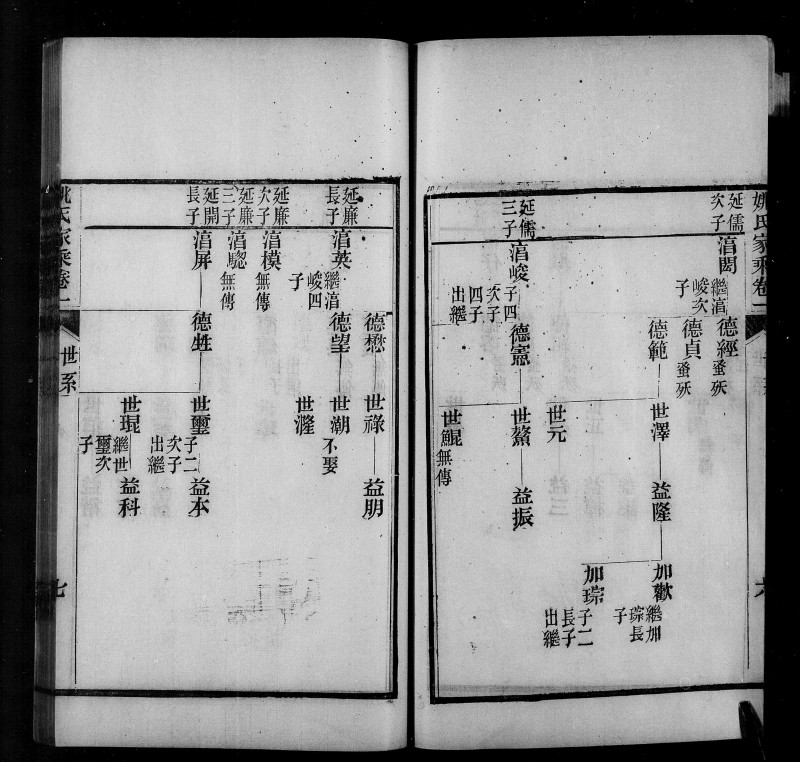 姚氏家乘卷一
六
延儒次子
渞閎
繼渞峻次子
德經
蚤歿
德貞
蚤歿
德範
世澤
益隆
加歡
繼加琮長子
加琮
子二長子出繼
世元
延儒三子
渞峻
子四次子四子出繼
德憲
世鰲
益振
世鯤
無傳
德懋
世祿
益朋
延廉長子
渞英
繼渞峻四子
德望
世潮
不娶
世漋
延廉次子
渞模
無傳
延廉三子
渞驄
無傳
延開長子
渞屏
德甡
世璽
子二次子出繼
益本
世琨
繼世璽次子
益科
姚氏家乘卷一
世系
七